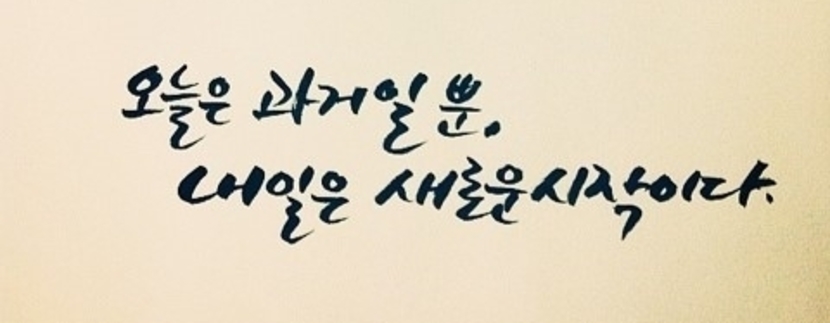 오늘은 과거일 뿐,
내일은 새로운 시작이다.